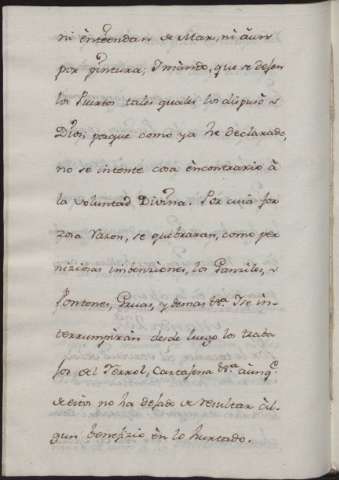 ni èntiendan de Mar, ni àun
por pintura; Y mando, que se dejen
los Puertos tales quales los dispusò
Dios; porque como ya he declarado,
no se intente cosa èncontrario à
la voluntad Divina. Por cuia for
zosa razon, se quebraran, como per
niziosas imbenziones, los
Pontones, Gruas, y demas &ra. Y se in-
terrumpiràn desde luego los traba
jos del Ferrol, Cartajena &ra. àunqe.
de estos no ha dejado de resultar àl-
gun benefizio èn lo hurtado.